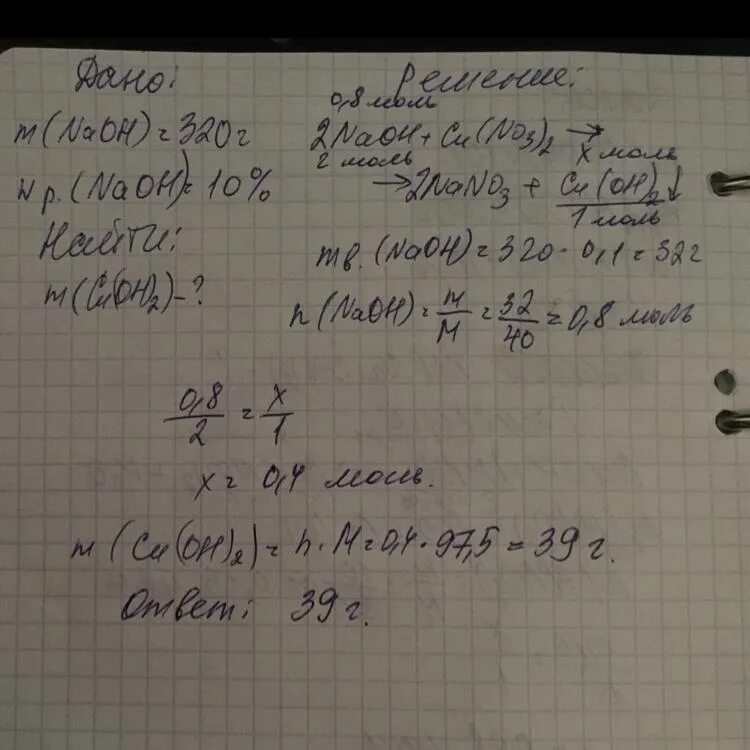 Дано:
m(NaOH) = 320г
w р.(NaOH) = 10%
Найти:
m(Cu(OH)2) - ?
Решение:
0,8 моль
2NaOH + Cu(NO3)2 →
2 моль
x моль
→ 2NaNO3 + Cu(OH)2↓
1 моль
m в. (NaOH) = 320 · 0,1 = 32г
n (NaOH) = m/M = 32/40 = 0,8 моль
0,8/2 = x/1
x = 0,4 моль.
m (Cu(OH)2) = n · M = 0,4 · 97,5 = 39 г.
Ответ: 39 г.